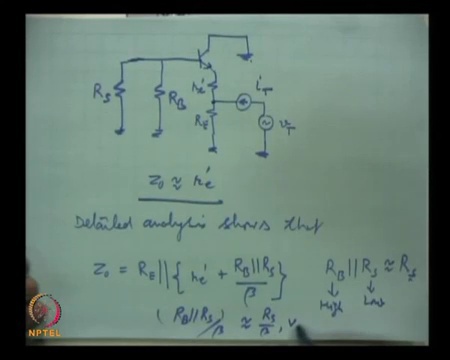 R_S
R_B
r_e'
R_E
i_T'
v_T
Z_0 ≈ r_e'
Detailed analysis shows that
Z_0 = R_E || { r_e' + R_B||R_S / β } R_B || R_S ≈ R_S
High Low
(R_B||R_S)/β ≈ R_S/β, v
NPTEL